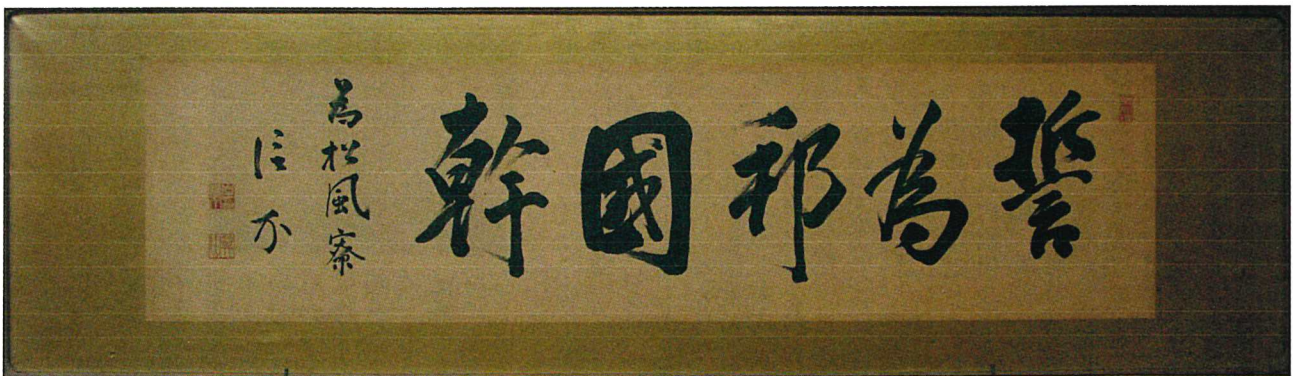 誓為邦國幹
為松風寮
信介